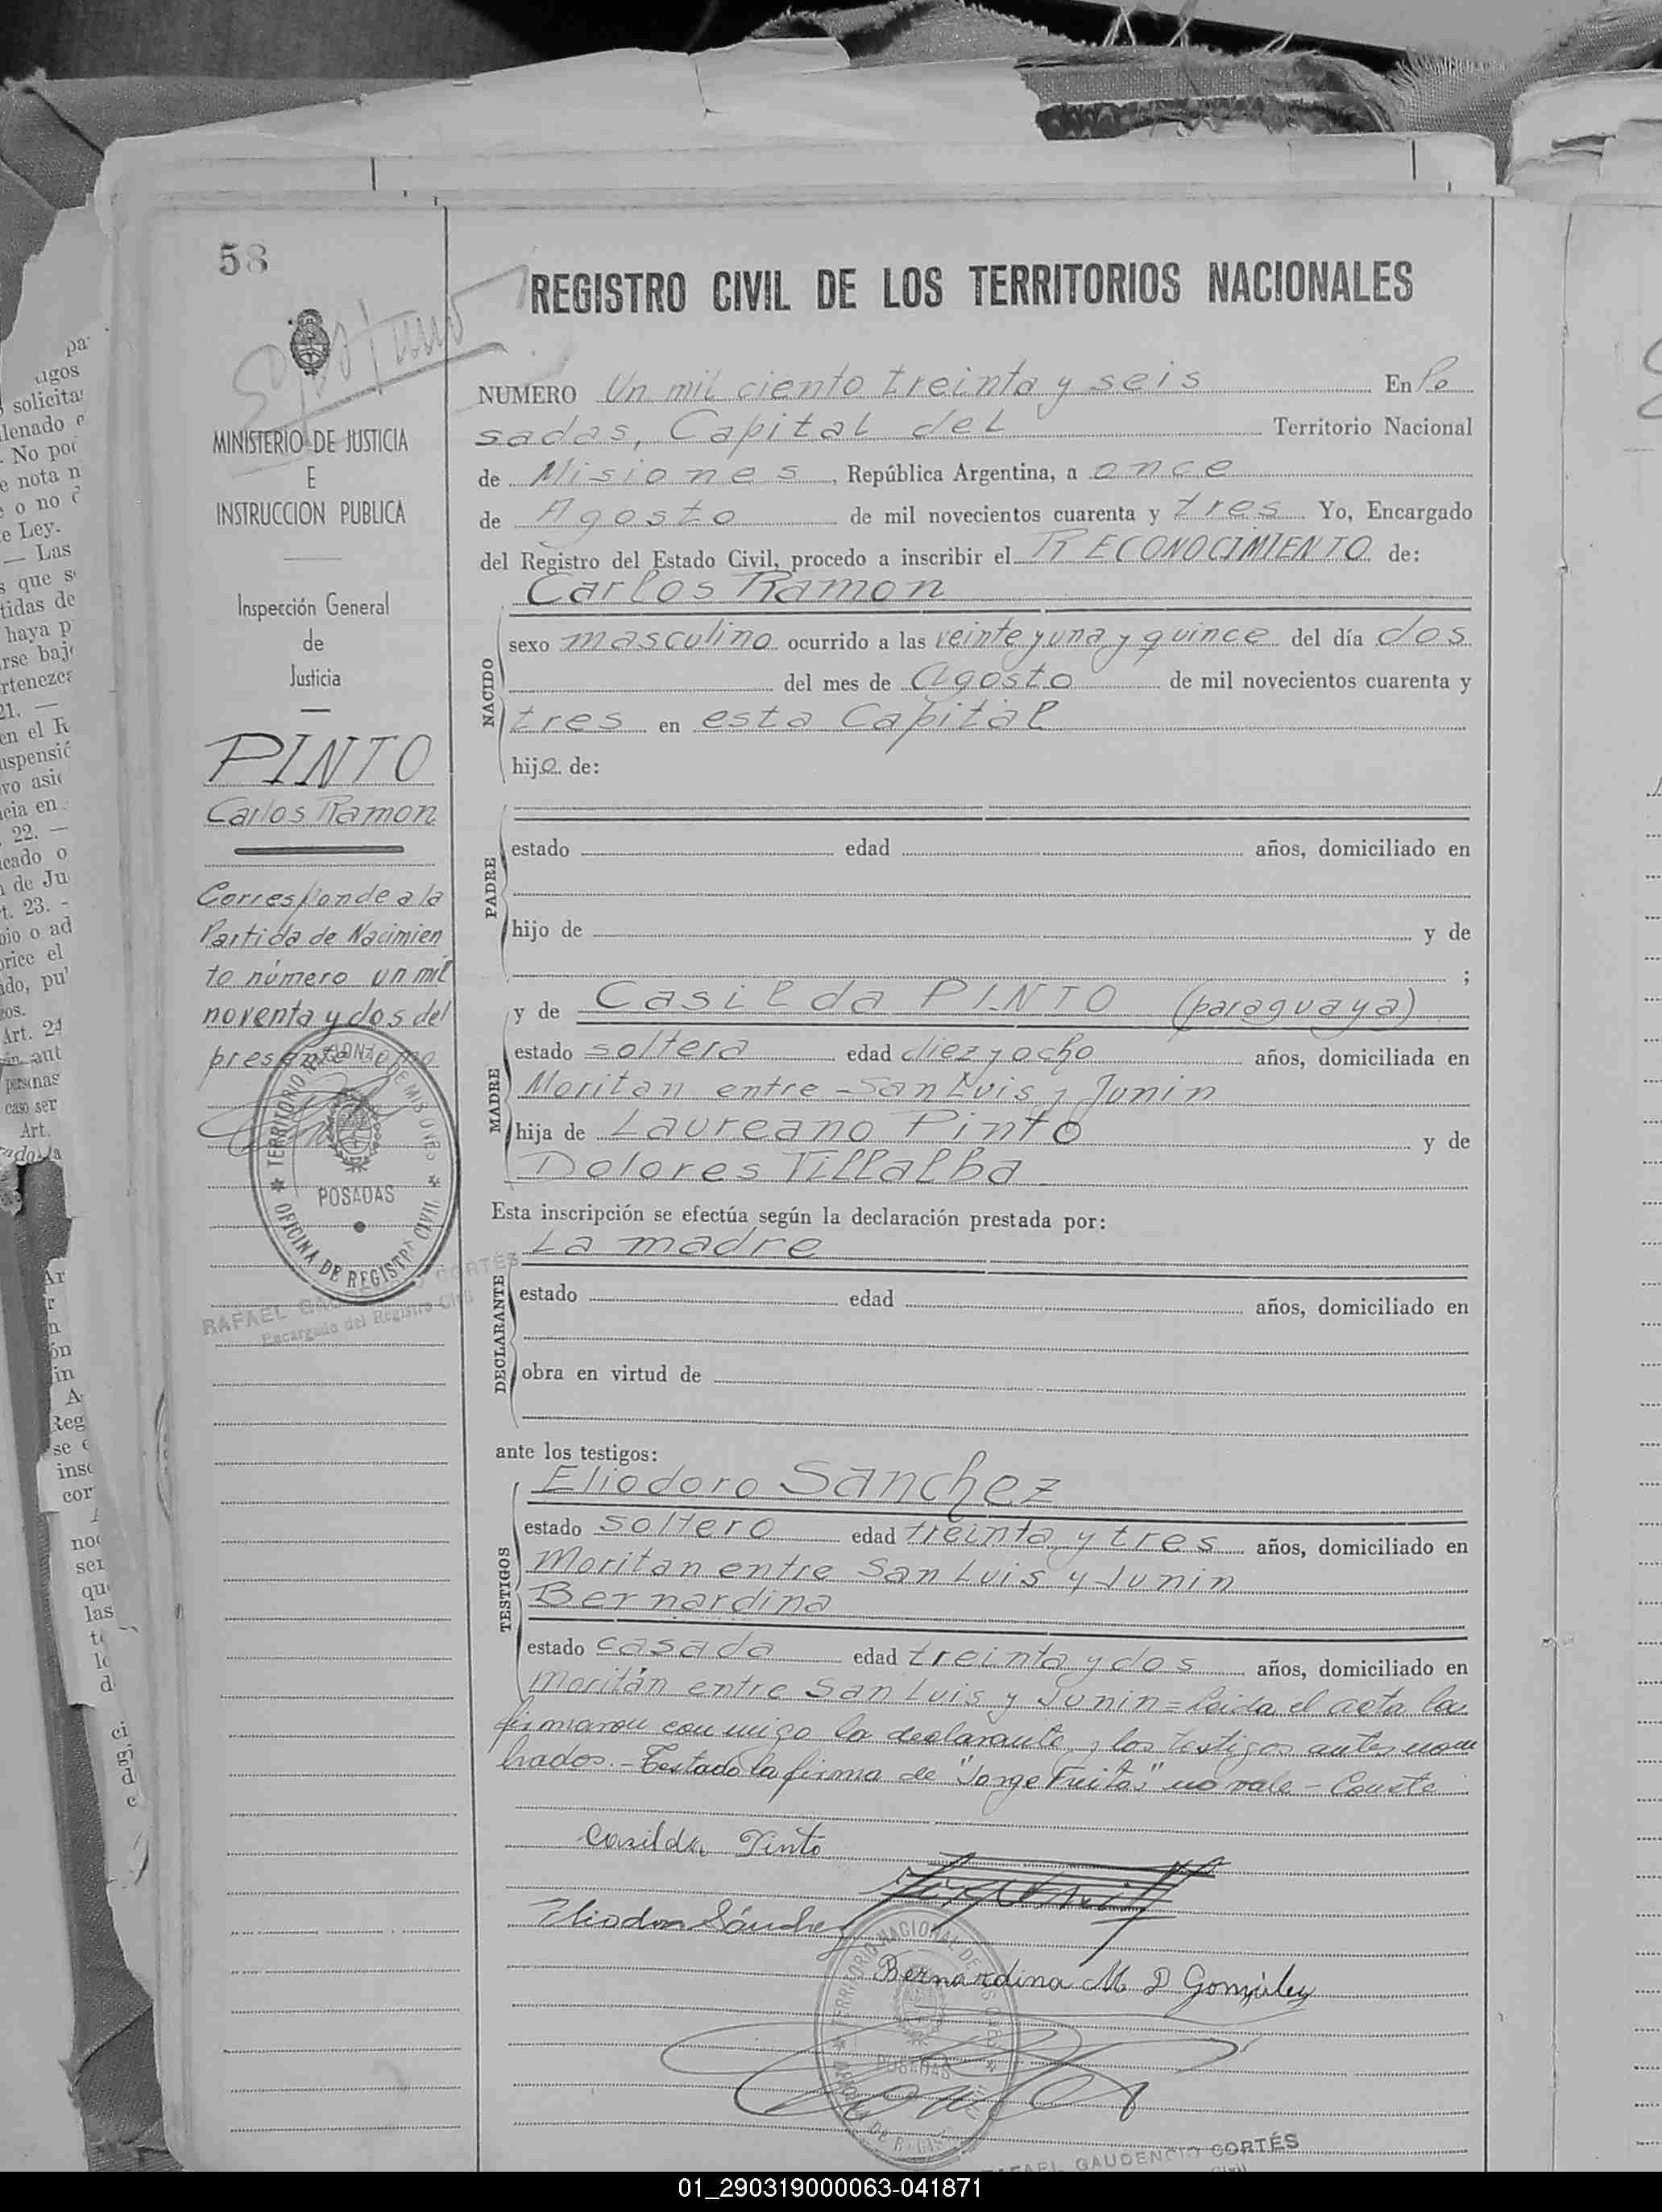 58
MINISTERIO DE JUSTICIA
E
INSTRUCCION PUBLICA
Inspección General
de
Justicia
PINTO
Carlos Ramon
Corresponde a la
Partida de Nacimien
to número un mil
noventa y dos del
presente tomo
TERRITORIO NACIONAL DE MISIONES
POSADAS
OFICINA DE REGISTRO CIVIL
RAFAEL GAUDENCIO CORTÉS
Encargado del Registro Civil
REGISTRO CIVIL DE LOS TERRITORIOS NACIONALES
NUMERO Un mil ciento treinta y seis En Po
sadas, Capital del Territorio Nacional
de Misiones, República Argentina, a once
de Agosto de mil novecientos cuarenta y tres Yo, Encargado
del Registro del Estado Civil, procedo a inscribir el RECONOCIMIENTO de:
Carlos Ramon
NACIDO
sexo masculino ocurrido a las veinte y una y quince del día dos
del mes de Agosto de mil novecientos cuarenta y
tres en esta Capital
hijo de:
PADRE
estado edad años, domiciliado en
hijo de y de
;
y de Casilda PINTO (paraguaya)
MADRE
estado soltera edad diez y ocho años, domiciliada en
Moritan entre San Luis y Junin
hija de Laureano Pinto y de
Dolores Villalba
Esta inscripción se efectúa según la declaración prestada por:
La madre
DECLARANTE
estado edad años, domiciliado en
obra en virtud de
ante los testigos:
Eliodoro Sanchez
TESTIGOS
estado soltero edad treinta y tres años, domiciliado en
Moritan entre San Luis y Junin
Bernardina
estado casada edad treinta y dos años, domiciliado en
Moritán entre San Luis y Junin = Leida el acta la
firmaron con migo la declarante y los testigos antes nom
brados. - Testado la firma de "Jorge Freitas" no vale - Conste
Casilda Pinto
Eliodoro Sánchez
Bernardina M D González
TERRITORIO NACIONAL DE
POSADAS
RAFAEL GAUDENCIO CORTÉS
01_290319000063-041871